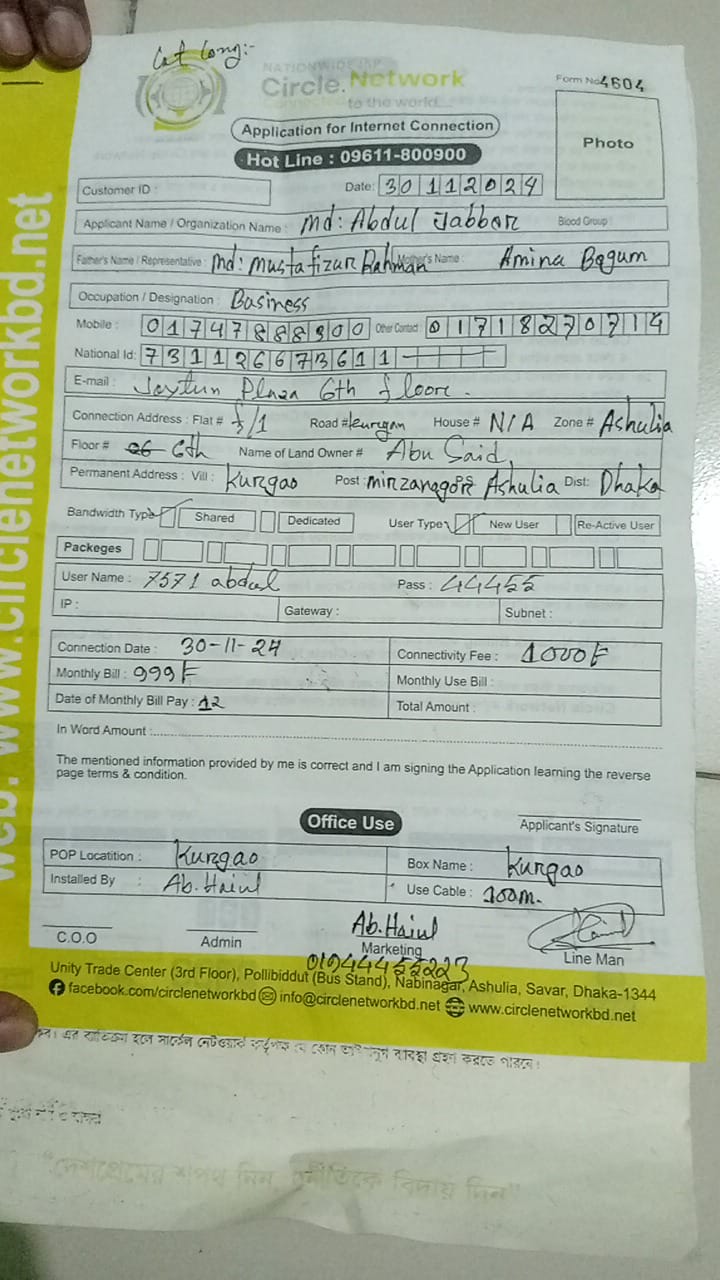 Lat Long:-
NATIONWIDE ISP
Circle.Network
Connected to the world...
Form No 4604
Application for Internet Connection
Photo
Hot Line : 09611-800900
Customer ID :
Date: 30112024
Applicant Name / Organization Name : Md: Abdul Jabbar Blood Group :
Father's Name / Representative : Md: Mustafizur Rahman Mother's Name : Amina Begum
Occupation / Designation : Business
Mobile : 01747888900 Other Contact: 01718270714
National Id: 731126673611
E-mail : Jaytun Plaza 6th floore.
Connection Address : Flat # f/1 Road # kurgan House # N/A Zone # Ashulia
Floor # 06 6th Name of Land Owner # Abu Said
Permanent Address : Vill : Kurgao Post : Ashulia Dist: Dhaka
Bandwidth Type Shared Dedicated User Type New User Re-Active User
Packeges
User Name : 7571 abdul Pass : 44455
IP : Gateway : Subnet :
Connection Date : 30-11-24 Connectivity Fee : 1000৳
Monthly Bill : 999৳ Monthly Use Bill :
Date of Monthly Bill Pay : 12 Total Amount :
In Word Amount :
The mentioned information provided by me is correct and I am signing the Application learning the reverse
page terms & condition.
Office Use
Applicant's Signature
POP Locatition : Kurgao Box Name : Kurgao
Installed By : Ab. Haiul Use Cable : 100m.
C.O.O Admin Ab. Haiul Marketing Line Man
01944455223
Unity Trade Center (3rd Floor), Pollibiddut (Bus Stand), Nabinagar, Ashulia, Savar, Dhaka-1344
facebook.com/circlenetworkbd info@circlenetworkbd.net www.circlenetworkbd.net
web: www.circlenetworkbd.net
এর ব্যতিক্রম হলে সার্কেল নেটওয়ার্ক কর্তৃপক্ষ যে কোন ব্যবস্থা গ্রহণ করতে পারবে।
"দেশপ্রেমের শপথ নিন, দুর্নীতিকে বিদায় দিন"